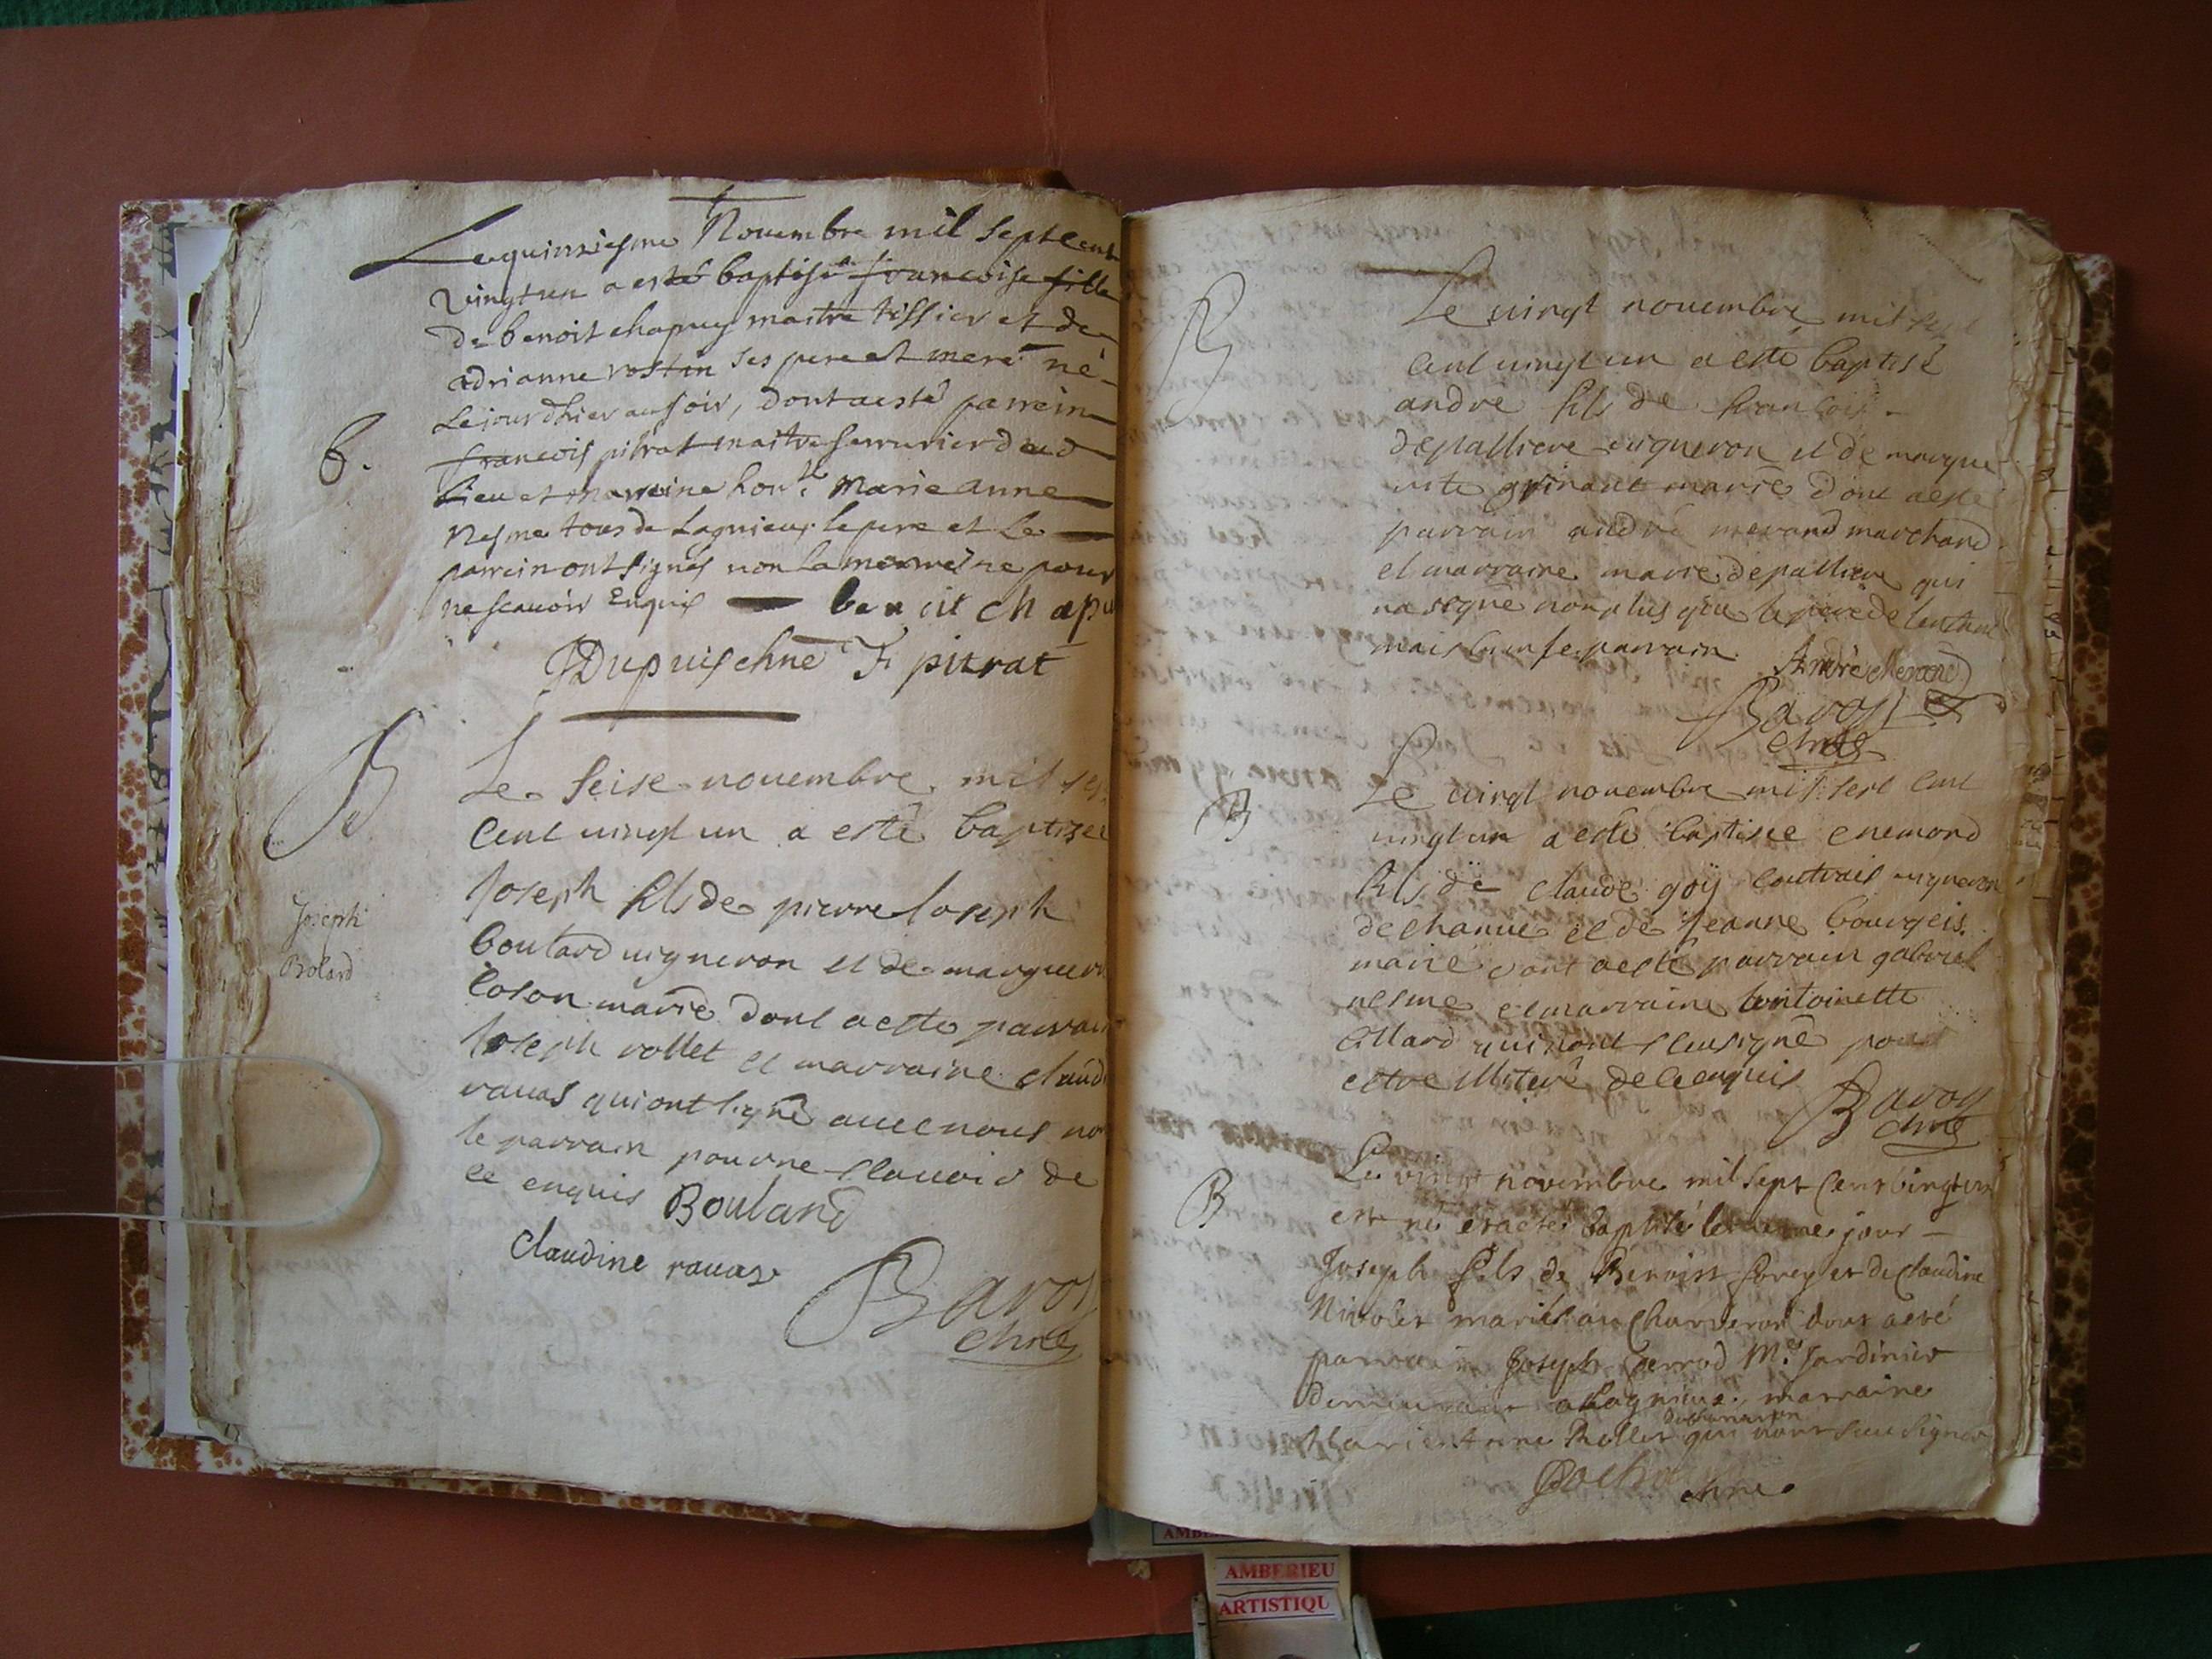 Lequinziesme Novembre mil Septcent
vingtun a esté baptisée francoise fille
de benoit chapuy maitre tissier et de
adrianne rostin ses pere et mere né
Lejour dhier ausoir, dont a esté parrein
francois pitrat maitre serrurier dud
B.
lieu et marreine hon.te Marie anne
nesme tous de Lagnieu, le pere et Le
parrein ont signés non la marreine pour
ne scauoir Enquis benoit chapu
Dupuis chne F pitrat
B
Le seise nouembre mil sep
cent uingt un a esté baptizé
Joseph fils de pierre Joseph
Joseph
Bolard
boulard uigneron et de marguer
coson marié dont a esté parrain
Joseph rollet et marraine claud
rauas qui ont signé auec nous no
le parrain pour ne scauoir de
ce enquis Bouland
claudine rauaz
Baron
chne
B
Le uingt nouembre mil sept
cent uingt un a esté baptisé
andre fils de francois
depalliere uigneron et de margue
rite marié dont a esté
parrain andré merand marchand
et marraine marie depalliere qui
na signé non plus que le pere de lenfant
mais bien le parrain André Merand
chne
B
Le uingt nouembre mil sept cent
uingt un a esté baptisé enemond
fils de claude goÿ uigneron
de chanue et de Jeanne bourgeis
marié dont a esté parrain gabriel
nesme et marraine tontoinette
qui nont sceu signé pour
estre de ce enquis
chne
B
Le vingt novembre mil sept cent vingt un
est né et a esté baptisé le meme jour
Joseph fils de Benoist et de Claudine
mariés au dont a eté
parrain Joseph perrod M.e Jardinier
demeurant a Lagnieu, marraine
Marie Anne Rollet qui nont sceu signer
chne
AMBERIEU
ARTISTIQU